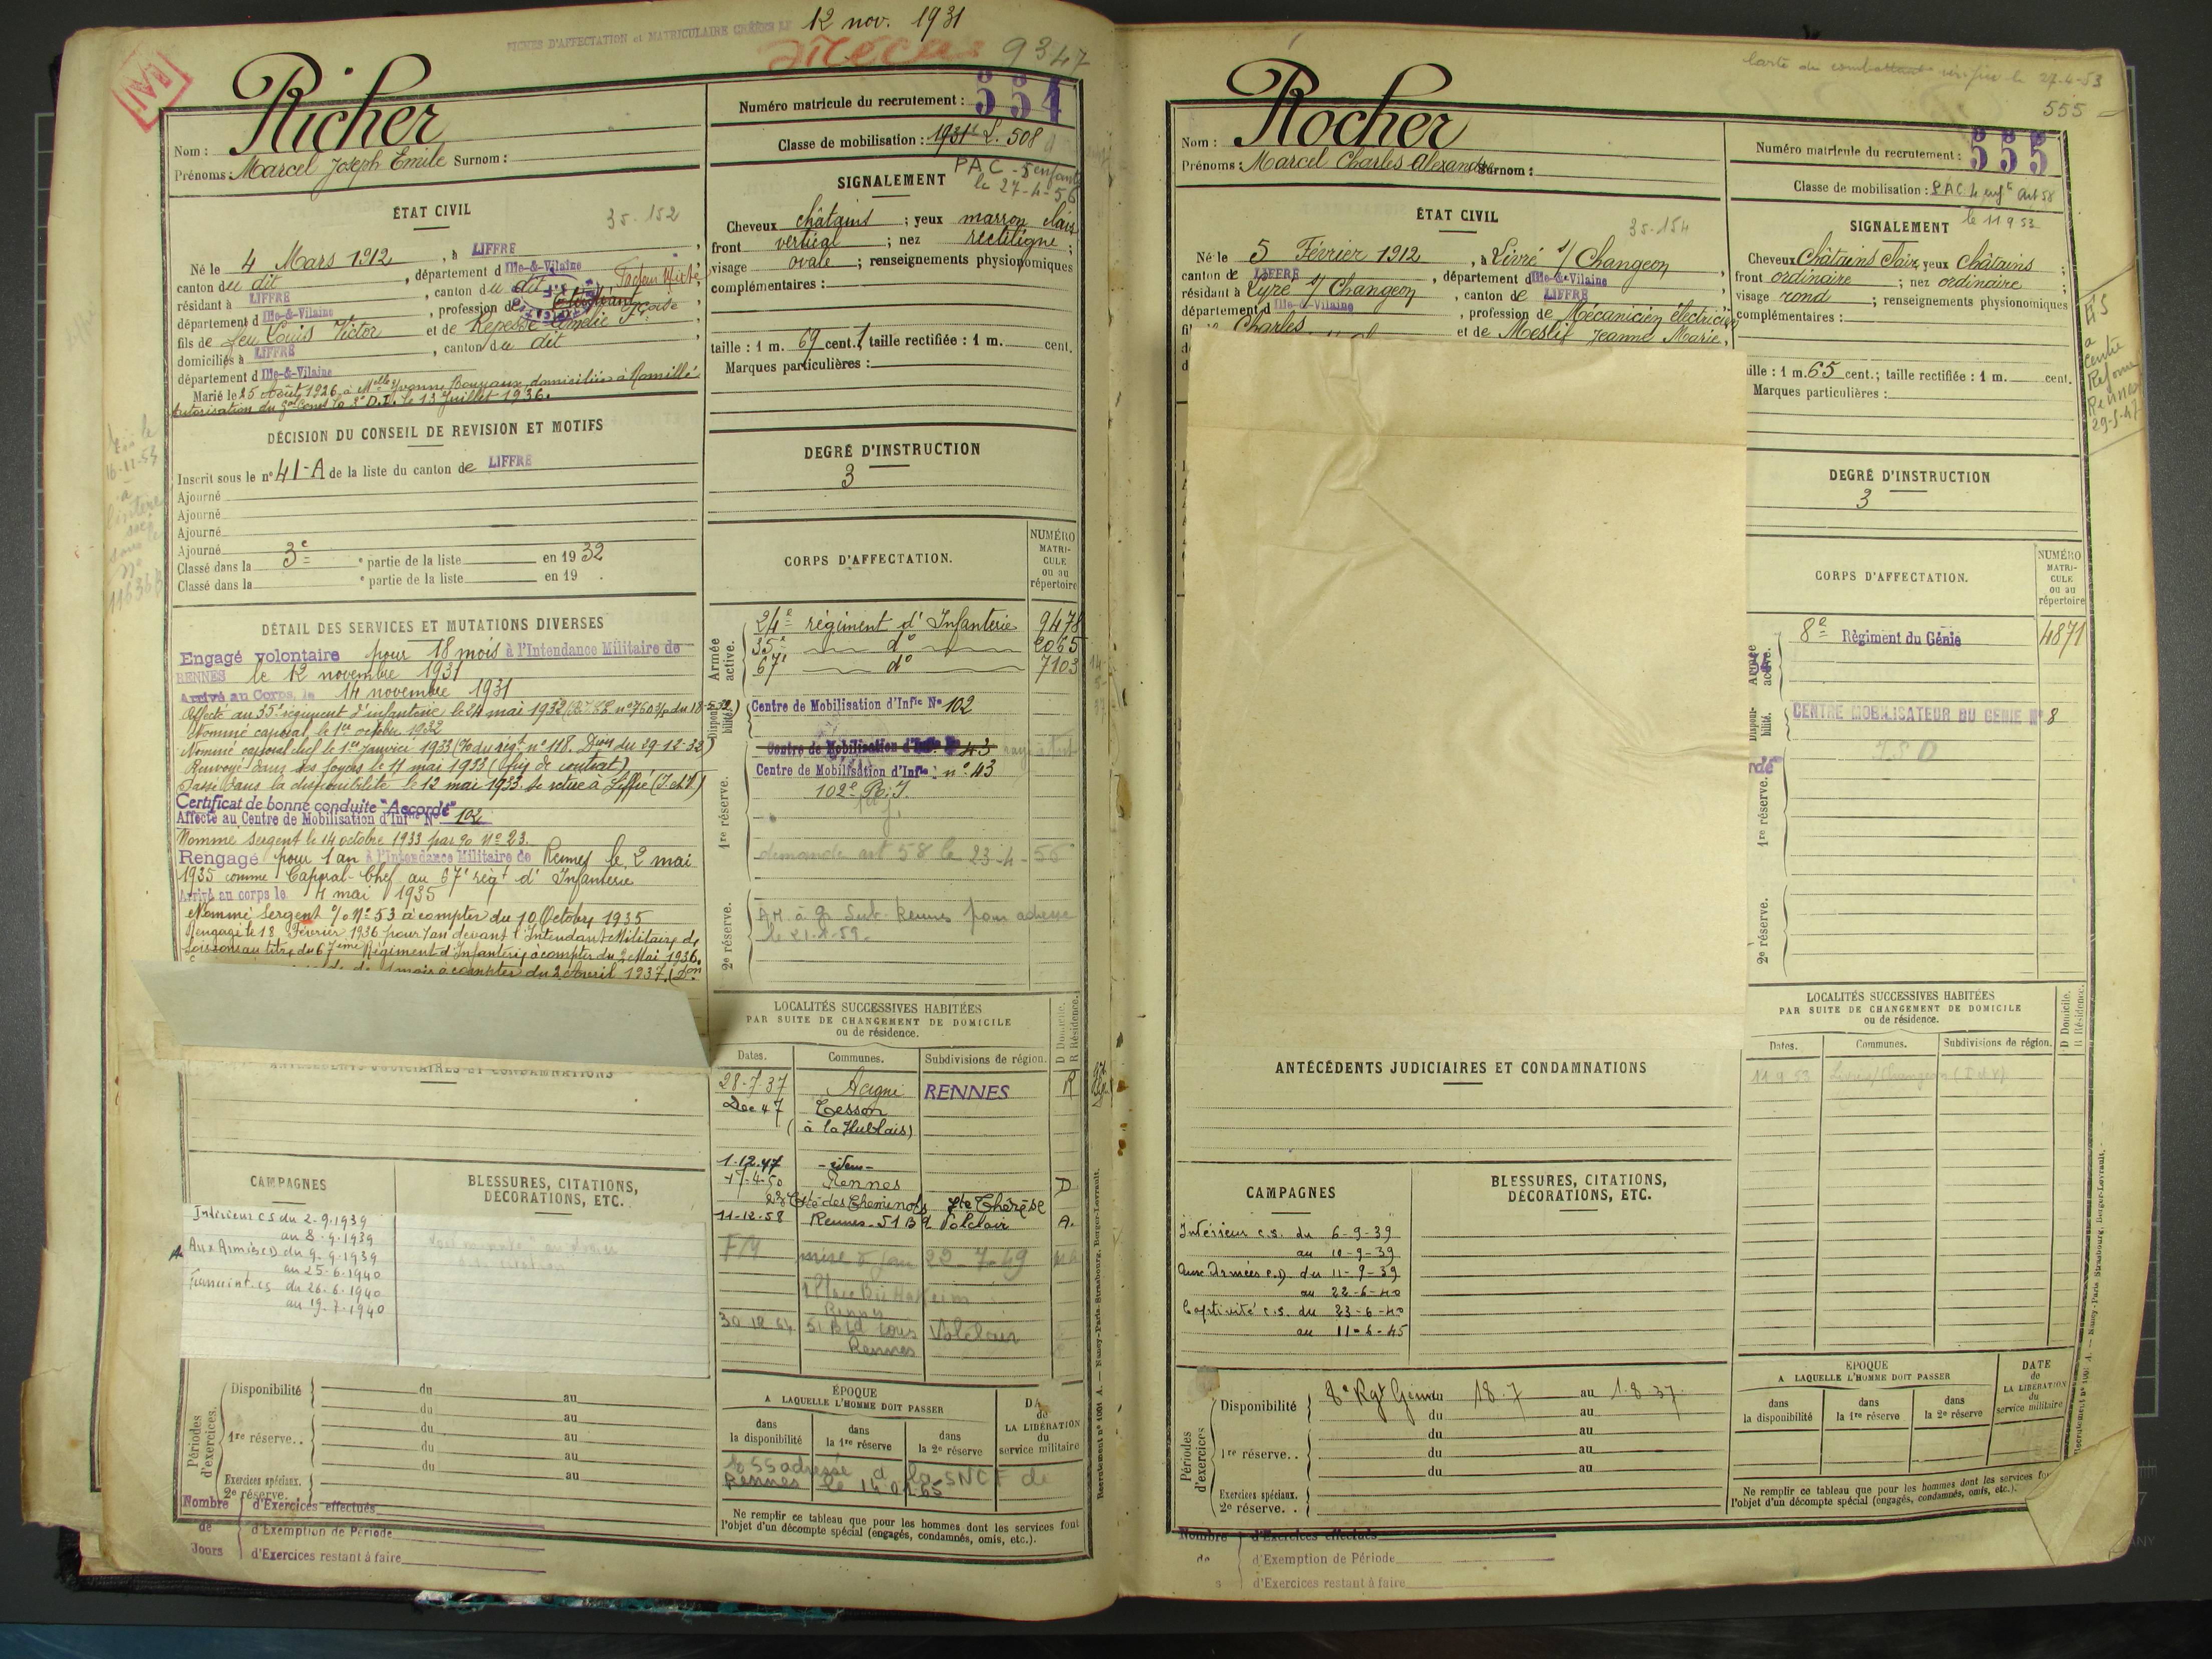 FICHES D'AFFECTATION et MATRICULAIRE CRÉÉES LE 12 nov. 1931
9347
Richer
Nom :
Prénoms : Marcel Joseph Emile Surnom :
ÉTAT CIVIL
35-152
Né le 4 Mars 1912, à LIFFRÉ,
canton du dit, département d Ille-&-Vilaine
résidant à LIFFRÉ, canton du dit
département d Ille-&-Vilaine, profession de
fils de feu Louis Victor et de Repessé Amélie Fçoise
domiciliés à LIFFRÉ, canton du dit
département d Ille-&-Vilaine
Marié le 25 Août 1926, à Melle Yvonne Bouvaux, domiciliée à Romillé
Autorisation du Gal Comt la 3e D.I. le 13 Juillet 1936.
DÉCISION DU CONSEIL DE REVISION ET MOTIFS
Inscrit sous le n° 41-A de la liste du canton de LIFFRÉ
Ajourné
Ajourné
Ajourné
Ajourné
Classé dans la 3e e partie de la liste en 1932
Classé dans la e partie de la liste en 19 .
DÉTAIL DES SERVICES ET MUTATIONS DIVERSES
Engagé volontaire pour 18 mois à l'Intendance Militaire de
RENNES le 12 novembre 1931
Arrivé au Corps le 14 novembre 1931
Affecté au 35e régiment d'infanterie le 24 mai 1932
Nommé caporal, le 1er octobre 1932
Nommé caporal chef le 1er Janvier 1933 (% du régt n° 118. Don du 29-12-32)
Renvoyé dans ses foyers le 11 mai 1933 (fin de contrat)
Passé dans la disponibilité le 12 mai 1933. Se retire à Liffré (I. et V.)
Certificat de bonne conduite "Accordé"
Affecté au Centre de Mobilisation d'Infie N° 102
Nommé sergent le 14 octobre 1933 par % N° 23.
Rengagé pour 1 an à l'Intendance Militaire de Rennes le 2 mai
1935 comme Caporal-Chef au 67e régt d'Infanterie
Arrivé au corps le 4 mai 1935
Nommé Sergent % N° 53 à compter du 10 Octobre 1935
Rengagé le 18 Février 1936 pour 1 an devant l'Intendant Militaire de
Soissons au titre du 67ème Régiment d'Infanterie à compter du 2 Mai 1936.
mois à compter du 2 Avril 1937. (Don
ANTÉCÉDENTS JUDICIAIRES ET CONDAMNATIONS
CAMPAGNES
BLESSURES, CITATIONS,
DÉCORATIONS, ETC.
Intérieur c.s du 2-9-1939
au 8-9-1939
Aux Armées CD du 9-9-1939
au 25-6-1940
du 26-6-1940
au 19-7-1940
Périodes d'exercices.
Disponibilité du au
du au
1re réserve.. du au
du au
du au
Exercices spéciaux.
2e réserve.
Nombre de Jours
d'Exercices effectués
d'Exemption de Période
d'Exercices restant à faire
Numéro matricule du recrutement : 554
Classe de mobilisation : 1931 L. 508
PAC - 5 enfants
le 27-4-56
SIGNALEMENT
Cheveux châtains ; yeux marron clair
front vertical ; nez rectiligne ;
visage ovale ; renseignements physionomiques
complémentaires :
taille : 1 m. 69 cent. ; taille rectifiée : 1 m. cent.
Marques particulières :
DEGRÉ D'INSTRUCTION
3
CORPS D'AFFECTATION.
NUMÉRO MATRICULE ou au répertoire
Armée active.
24e régiment d'Infanterie 9478
35e d° 2065
67e d° 7103
Disponibilité.
Centre de Mobilisation d'Infie N° 102
1re réserve.
Centre de Mobilisation d'Infie N° 43
Centre de Mobilisation d'Infie : n° 43
102e R.I.
demande art 58 le 23-4-56
2e réserve.
LOCALITÉS SUCCESSIVES HABITÉES
PAR SUITE DE CHANGEMENT DE DOMICILE
ou de résidence.
D Domicile.
R Résidence.
Dates. Communes. Subdivisions de région.
28-7-37 Acigné RENNES R
Dec 47 Cesson
(à la Hublais)
1.12.47 - idem -
17-4-50 Rennes D
23 Cité des Cheminots Ste Thérèse
11-12-58 Rennes - 51 Bd Volclair A.
22-7-59
Rennes
30 12 64 51 Bld Volclair
Rennes
ÉPOQUE
A LAQUELLE L'HOMME DOIT PASSER
dans la disponibilité
dans la 1re réserve
dans la 2e réserve
DA
de
LA LIBÉRATION
du
service militaire
adressé à la SNCF de
Rennes le 14-01-65
Ne remplir ce tableau que pour les hommes dont les services font
l'objet d'un décompte spécial (engagés, condamnés, omis, etc.).
Recrutement n° 1001 A. — Nancy-Paris-Strasbourg. Berger-Levrault.
Carte du combattant vérifiée le 27-4-53
555
Rocher
Nom :
Prénoms : Marcel Charles Alexandre Surnom :
ÉTAT CIVIL
35-154
Né le 5 Février 1912, à Livré s/ Changeon,
canton de LIFFRÉ, département d Ille-&-Vilaine
résidant à Livré s/ Changeon, canton de LIFFRÉ
département d Ille-&-Vilaine, profession de Mécanicien électricien
Charles et de Meslif Jeanne Marie,
ANTÉCÉDENTS JUDICIAIRES ET CONDAMNATIONS
CAMPAGNES
BLESSURES, CITATIONS,
DÉCORATIONS, ETC.
Intérieur c.s. du 6-9-39
au 10-9-39
Aux Armées c.D du 11-9-39
au 22-6-40
Captivité c.s. du 23-6-40
au 11-5-45
Périodes d'exercices
Disponibilité 8e Rgt Génie du 18.7 au 1.8.37.
du au
du au
1re réserve.. du au
du au
Exercices spéciaux.
2e réserve. .
Nombre de
d'Exercices effectués
d'Exemption de Période
d'Exercices restant à faire
Numéro matricule du recrutement : 555
Classe de mobilisation : P.A.C. 4 enfts Art 58
le 11 9 53
SIGNALEMENT
Cheveux Châtains Clair, yeux châtains ;
front ordinaire ; nez ordinaire ;
visage rond ; renseignements physionomiques
complémentaires :
ille : 1 m. 65 cent. ; taille rectifiée : 1 m. cent.
Marques particulières :
a
Centre
Réforme
Rennes
29-5-47
DEGRÉ D'INSTRUCTION
3
CORPS D'AFFECTATION.
NUMÉRO MATRICULE ou au répertoire
Armée active.
8e Régiment du Génie 4871
Disponibilité.
CENTRE MOBILISATEUR DU GENIE N° 8
1re réserve.
2e réserve.
LOCALITÉS SUCCESSIVES HABITÉES
PAR SUITE DE CHANGEMENT DE DOMICILE
ou de résidence.
D Domicile.
R Résidence.
Dates. Communes. Subdivisions de région.
11 9 53 Livré s/ Changeon (I et V)
ÉPOQUE
A LAQUELLE L'HOMME DOIT PASSER
dans la disponibilité
dans la 1re réserve
dans la 2e réserve
DATE
de
LA LIBÉRATION
du
service militaire
Ne remplir ce tableau que pour les hommes dont les services
l'objet d'un décompte spécial (engagés, condamnés, omis, etc.).
Recrutement n° 1001 A. — Nancy-Paris-Strasbourg. Berger-Levrault.